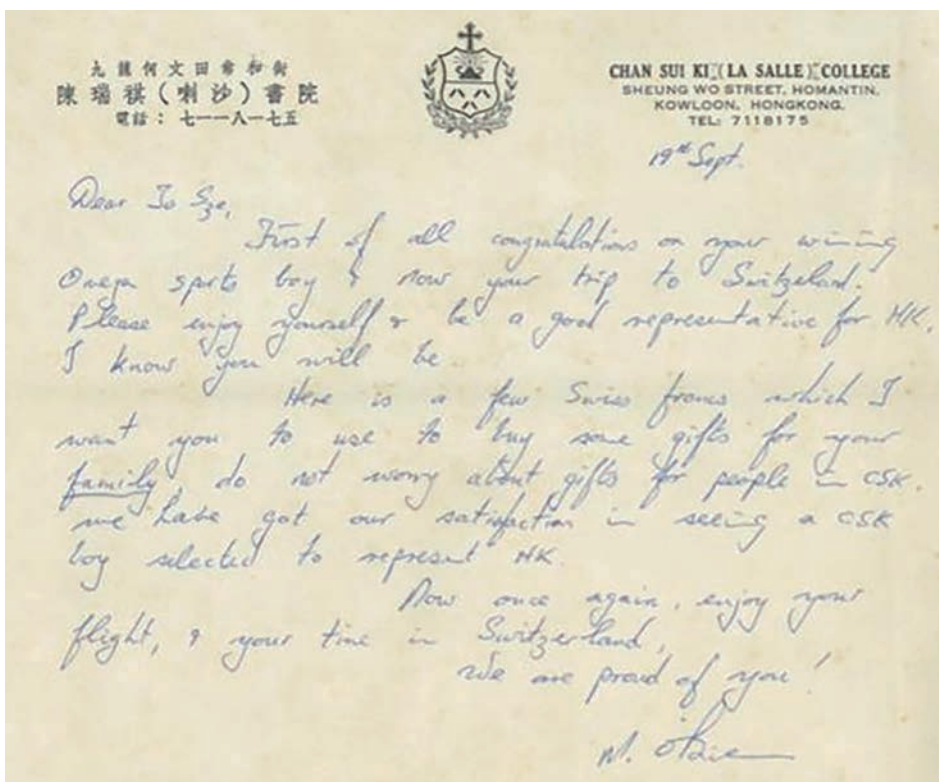 九龍何文田常和街
陳瑞祺(喇沙)書院
電話：七一一八一七五
CHAN SUI KI (LA SALLE) COLLEGE
SHEUNG WO STREET, HOMANTIN,
KOWLOON, HONGKONG.
TEL: 7118175
19th Sept.
Dear To Sze,
First of all congratulations on your winning
Omega sports boy & now your trip to Switzeland.
Please enjoy yourself & be a good representative for HK.
I know you will be.
Here is a few Swiss francs which I
want you to use to buy some gifts for your
family, do not worry about gifts for people in CSK.
we have got our satisfaction in seeing a CSK
boy selected to represent HK.
Now once again, enjoy your
flight, & your time in Switzerland,
We are proud of you!
M.